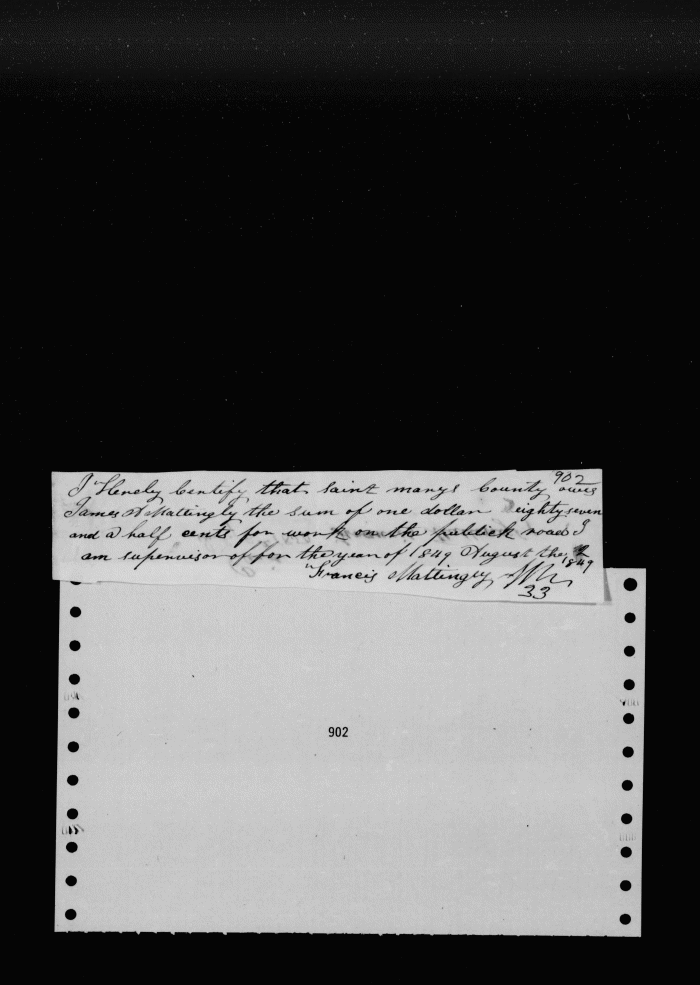 902
I Hereby Certify that saint marys County owes
James A Mattingly the sum of one dollar eighty seven
and a half cents for work on the publick road I
am supervisor of for the year of 1849 August the
1849
Francis Mattingly
33
902